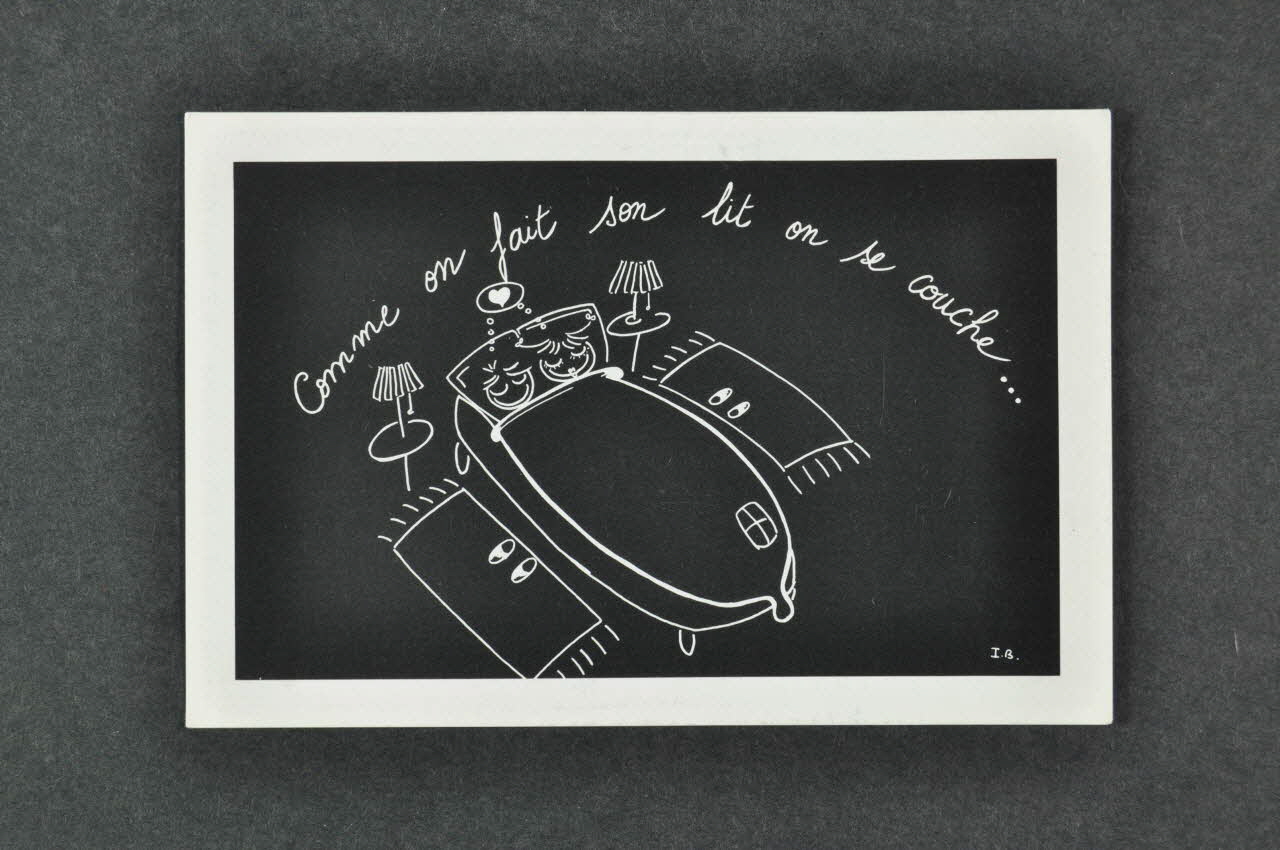 Comme on fait son lit on se couche...
I.B.